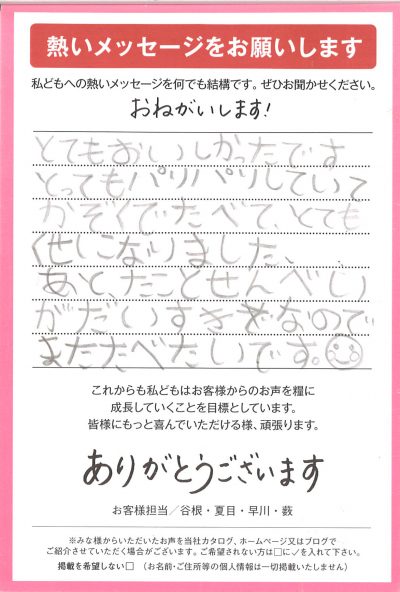 熱いメッセージをお願いします
私どもへの熱いメッセージを何でも結構です。ぜひお聞かせください。
おねがいします!
とてもおいしかったです
とってもパリパリしていて
かぞくでたべて、とても
くせになりました、
あと、たことせんべい
がだいすきなので
またたべたいです。
これからも私どもはお客様からのお声を糧に
成長していくことを目標としています。
皆様にもっと喜んでいただける様、頑張ります。
ありがとうございます
お客様担当/谷根・夏目・早川・薮
※みな様からいただいたお声を当社カタログ、ホームページ又はブログで
ご紹介させていただく場合がございます。ご希望されない方は□に✓を入れて下さい。
掲載を希望しない□ (お名前・ご住所等の個人情報は一切掲載いたしません)